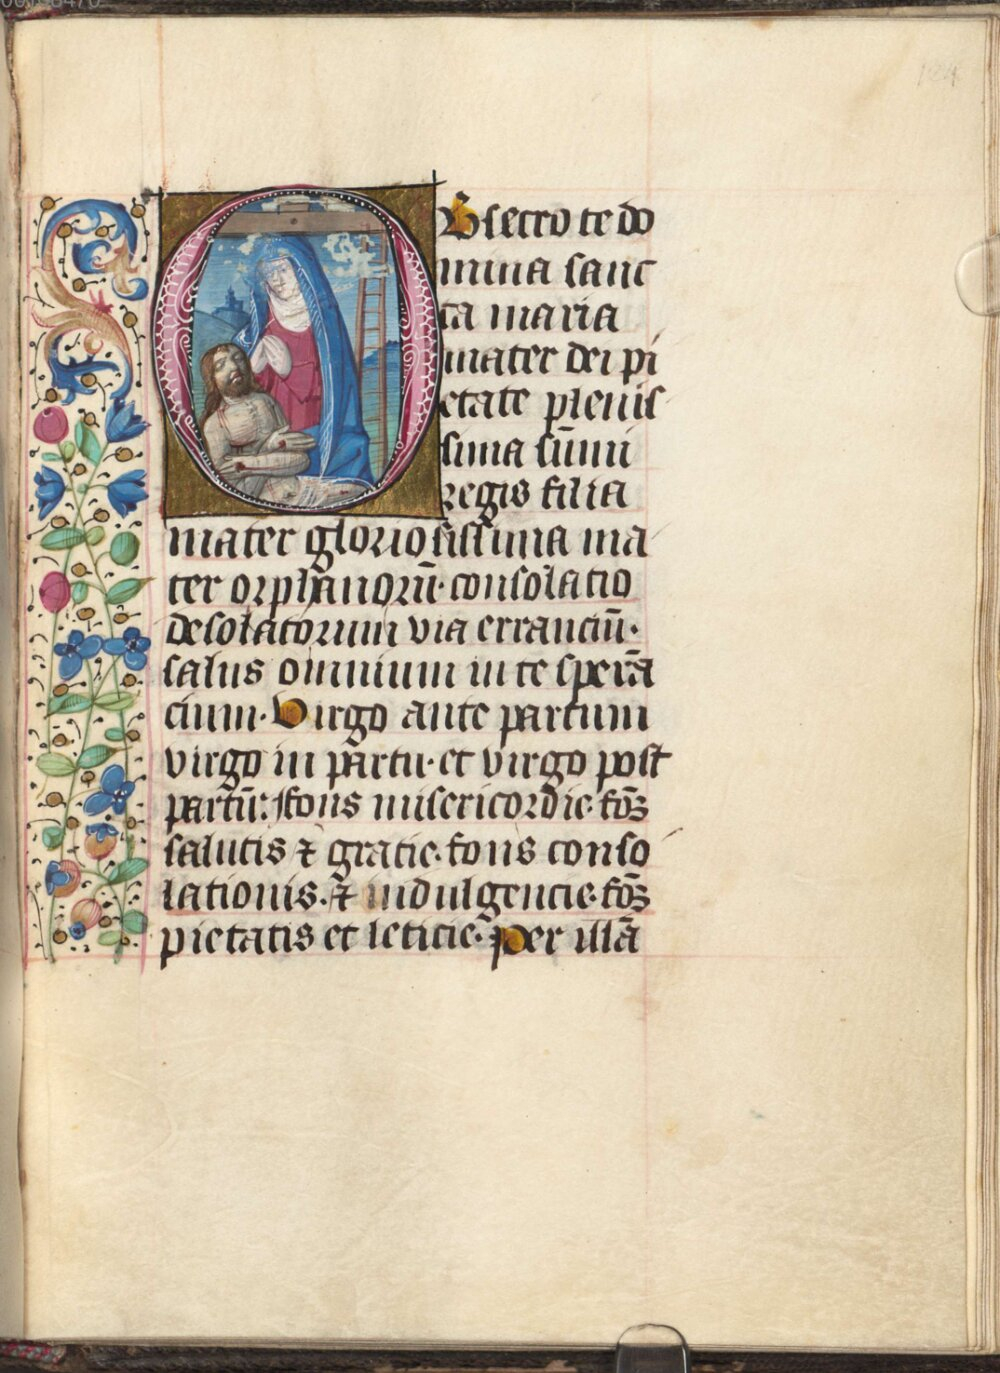 Obsecro te do
mina sanc
ta maria
mater dei pi
etate plenis
sima sũmi
regis filia
mater gloriosissima ma
ter orphanorũ· consolatio
desolatorum via eranciũ·
salus omnium in te sperã
cium· Virgo ante partum
virgo in partu· et virgo post
partũ: fons misericordie· fõs
salutis ⁊ gratie· fons conso
lationis· ⁊ indulgencie· fõs
pietatis et leticie· Per illã